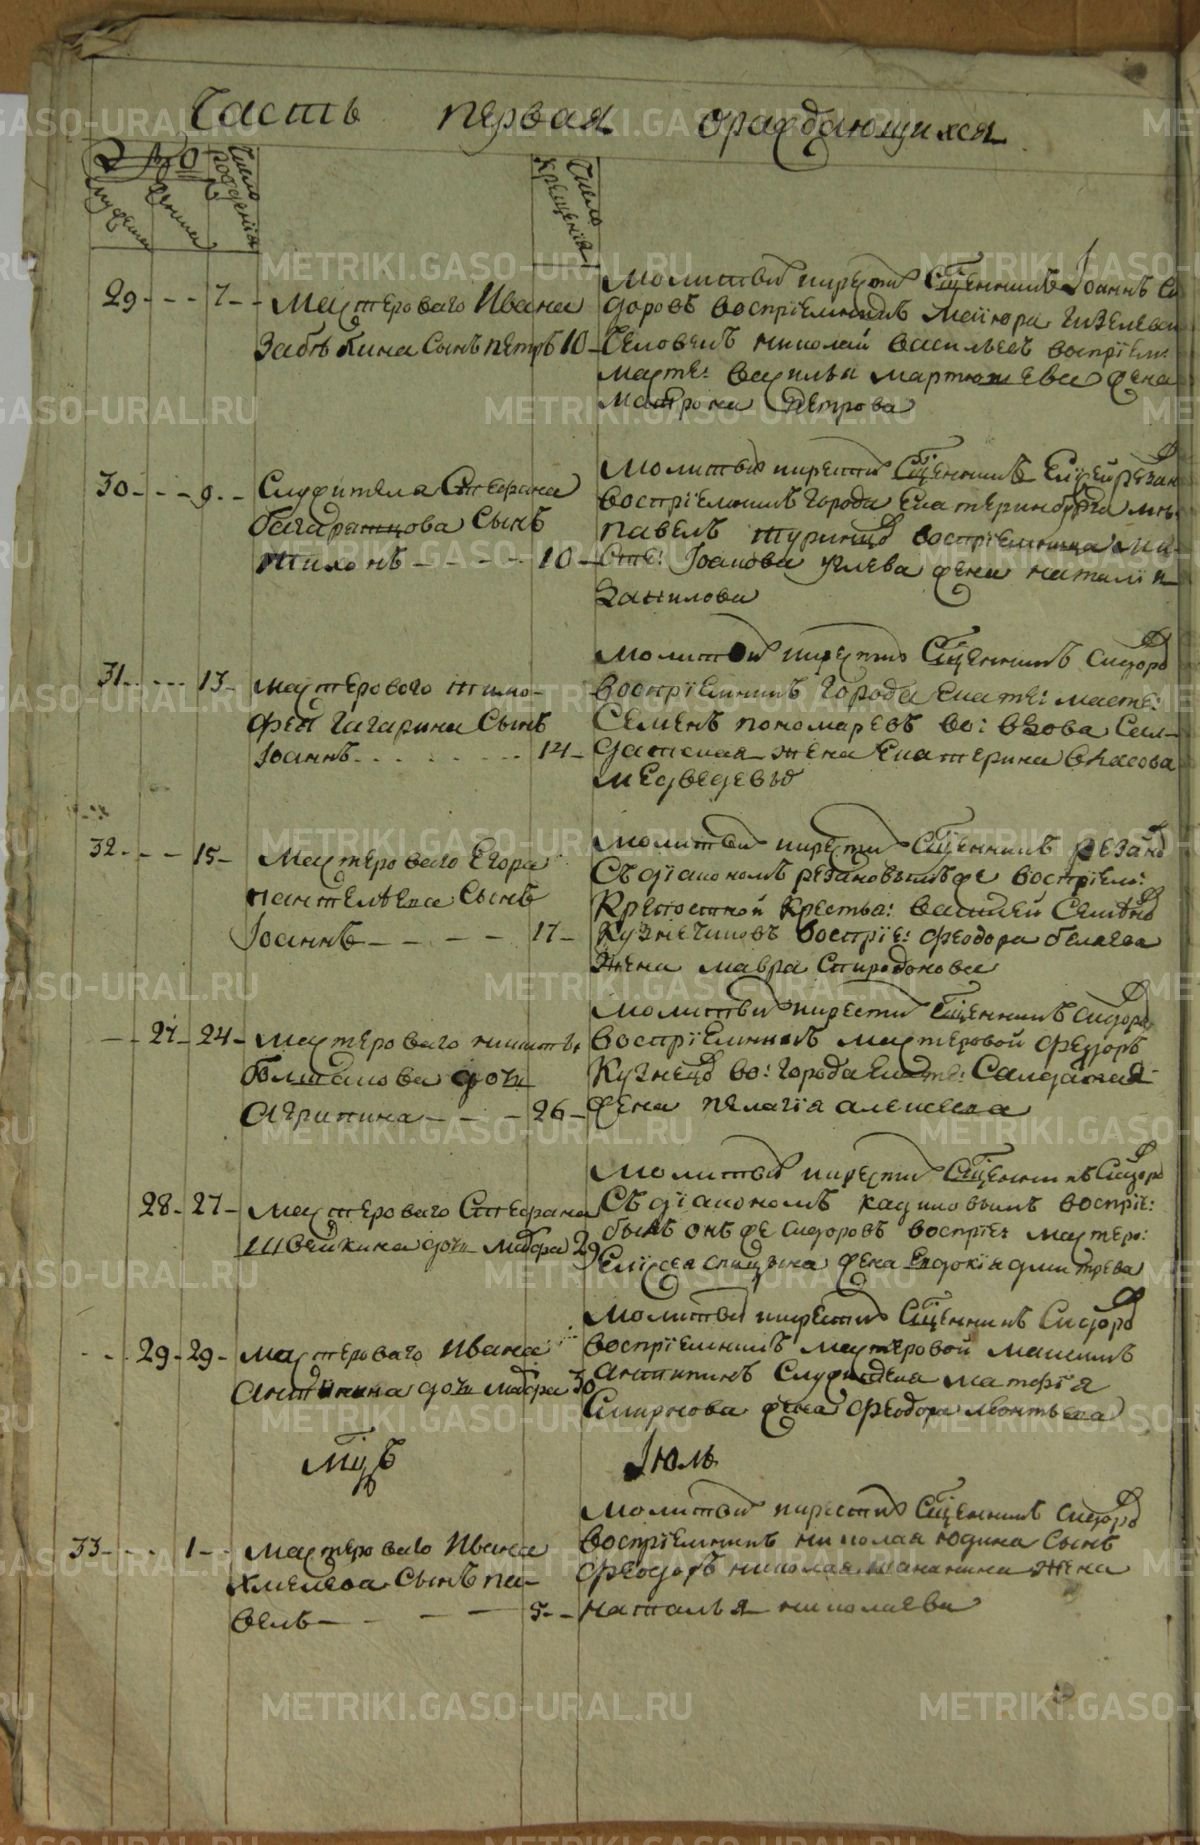 Часть первая ораждающихся
Число рождения
Число крещения
29 - - - 7 - - мастероваго Ивана
Забѣлкина Сынъ петръ 10
молитви и крести Сщенникъ Іоаннъ Си
доровъ воспріемникъ маиіора
Человекъ николай васильевъ воспріем:
масте: василья мартюшева жена
матрона петрова
30 - - - 9 - - Служителя Стефана
багаратцова Сынъ
тихонъ - - - - 10 -
молитви и крести Сщенникъ Елисей резан
воспріемникъ города Екатеринбурга
павелъ турницо воспріемница
жена наталія
данилова
31 - - - 13 - мастерового тимо-
фея гагарина Сынъ
Іоаннъ - - - - 14 -
молитви и крести Сщенникъ сидоро
воспріемникъ города Екате: масте:
Семенъ пономаревъ во: вдова Сол-
датская жена Екатерина власова
медведевыо
32 - - - 15 - мастероваго Егора
пантелѣева Сынъ
Іоаннъ - - - - 17 -
молитви и крести Сщенникъ резано
Съ діакономъ резановымъ же воспріем:
крепостной крестья: василей Семено
кузнечиковъ воспріе: Феодора беляева
жена мавра Спиридонова
- - 27 - 24 - мастероваго никиты
большакова дочь
агрипина - - - 26 -
молитви и крести Сщенникъ сидоро
воспріемникъ мастеровой Федоръ
кузнецо во: города Екате: Салдатская
жена пелагія алексеева
28 - 27 - мастероваго Стефана
швейкина дочь мавра 29
молитви и крести Сщенникъ Сидоро
Съ діакономъ воспріе:
былъ онъ же сидоровъ воспріе: мастеро:
Елисея спицына жена Евдокія дмитрева
- - 29 - 29 - мастероваго Ивана
антипина дочь мавра 30
молитви и крести Сщенникъ Сидоро
воспріемникъ мастеровой максимъ
антипинъ Служителя матфія
Смирнова жена феодора леонтьева
мцъ Іюль
33 - - - 1 - - мастероваго Ивана
хмелева Сынъ па-
велъ - - - - 5 - -
молитви и крести Сщенникъ сидоро
воспріемникъ николая юдина Сынъ
феодоръ николая шананина жена
наталья николаева